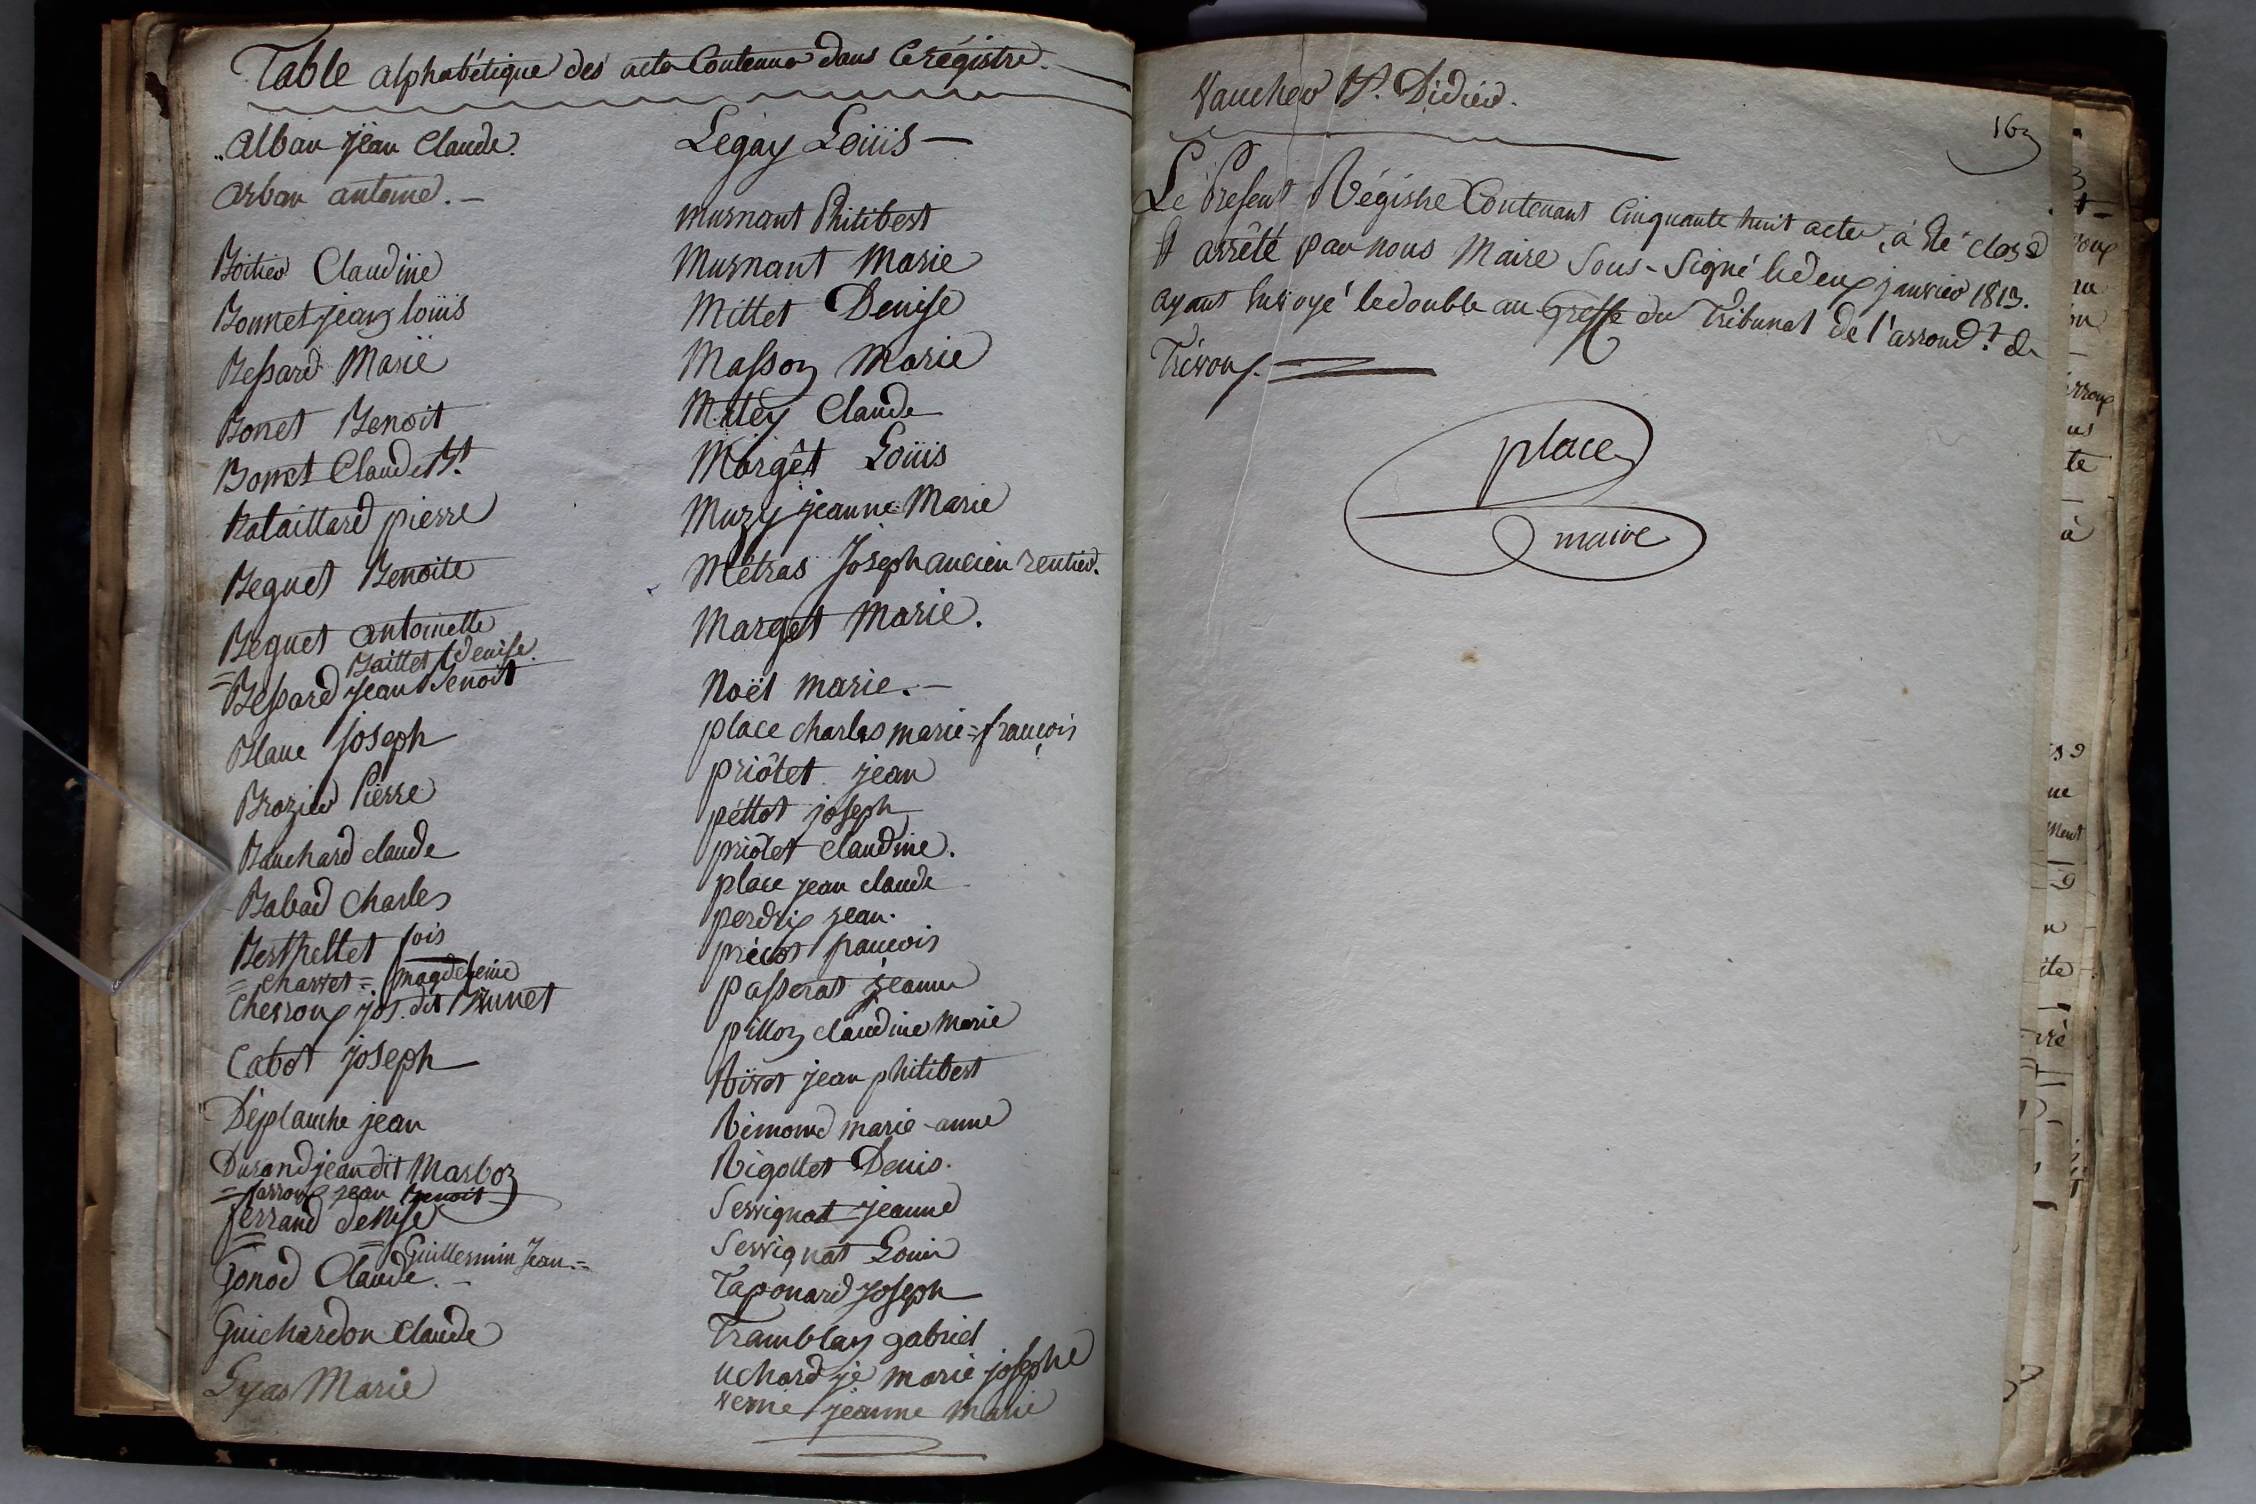 Table alphabétique des actes Contenus dans ce régistre.
Alban jean Claude.
arban antoine. -
Boitier Claudine
Bonnet jean loüis
Bessard Marie
Bonet Benoit
Bonnet Claude Bt.
Bataillard pierre
Beguet Benoite
Beguet antoinette
Baillet denise
Bessard jean Benoit
Blanc joseph
Brozier Pierre
Bouchard claude
Babad Charles
Berthellet fois
= Charvet = magdeleine
Chevroux jos. dit Brunet
Cabot joseph
Déplanche jean
Durand jean dit Marboz
= farroux jean Benoit
ferrand denise
= Guillermin Jean. =
Gonod Claude. -
Guichardon Claude
Gyas Marie
Legay Loüis -
Murnant Philibert
Murnant Marie
Mittet Denise
Masson Marie
Mitey Claude
Morgêt Loüis
Muzy jeanne Marie
Métras Joseph ancien rentier.
Marget Marie.
Noël marie. -
place charles marie = françois
priôlet jean
péttot joseph
priôlet claudine.
place jean claude
perdrix jean.
précot francois
passerat jeanne
pillon claudine Marie
Rivet jean philibert
Rémond marie-anne
Rigollet Denis.
Servignat jeanne
Servignat Louis
Taponard joseph
Tramblay gabriel
uchard je marie josephe
verne jeanne marie
Vaucher Pt. Didier.
163
Le Présent Régistre Contenant cinquante huit actes, a été clos
et arrêté par nous Maire Sous-Signé le deux janvier 1813.
ayant envoyé le double au Greffe du Tribunal de l'arrond.t de
Trévoux.
place
maire